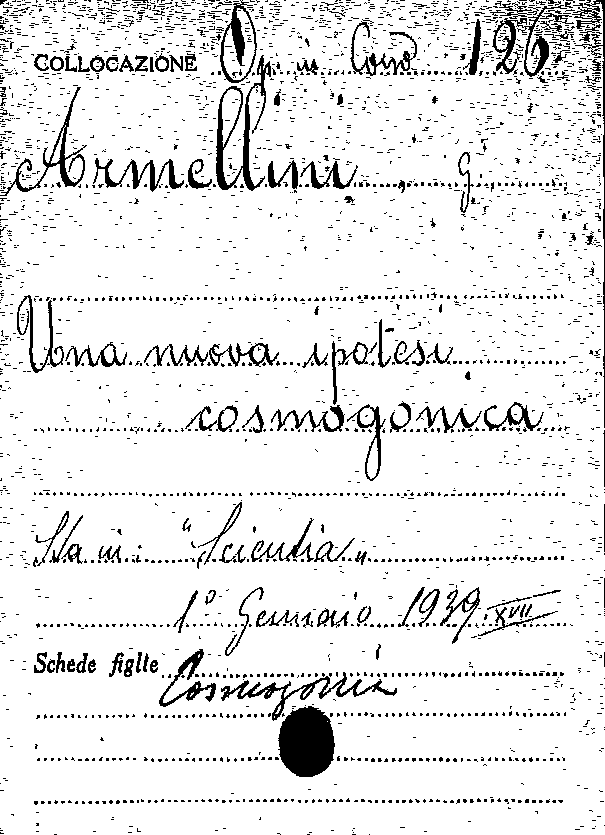 COLLOCAZIONE Op. in Cons 126
Armellini, G.
Una nuova ipotesi
cosmogonica
Sta in: "Scientia"
1° Gennaio 1939. XVII
Schede figlie Cosmogonia